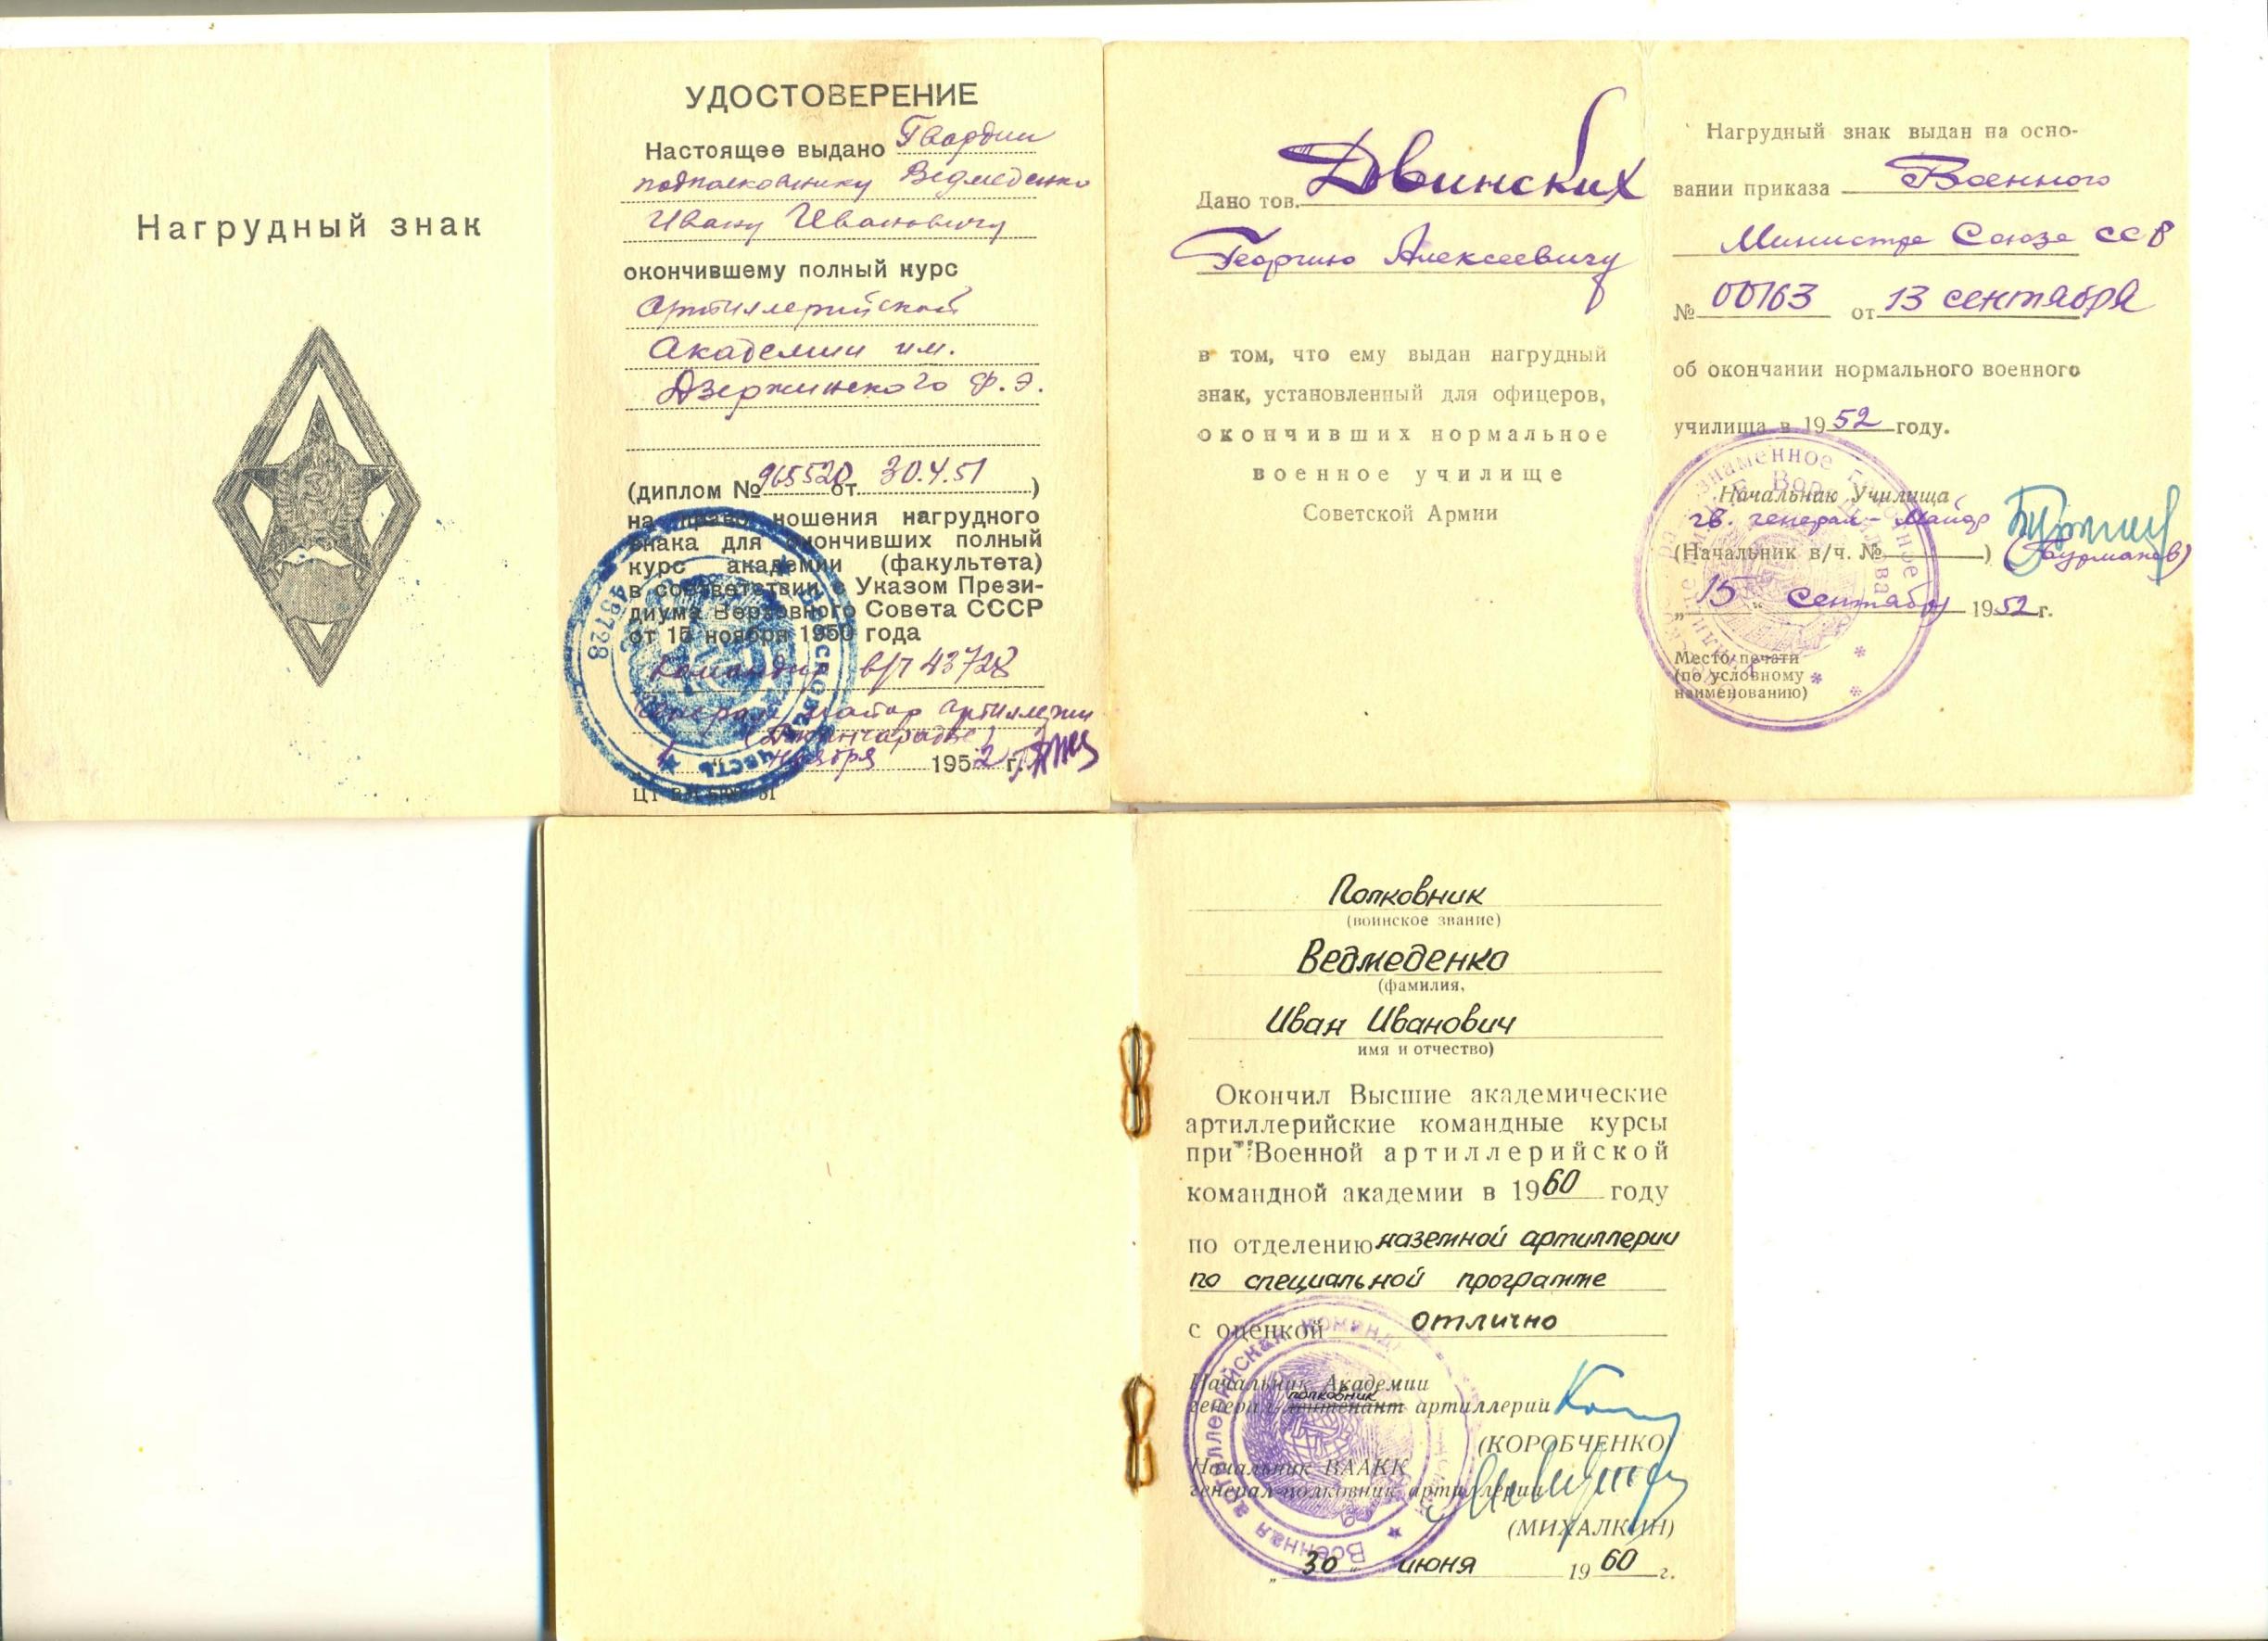 Нагрудный знак
УДОСТОВЕРЕНИЕ
Настоящее выдано Гвардии
подполковнику Ведмеденко
Ивану Ивановичу
окончившему полный курс
Артиллерийской
Академии им.
Дзержинского Ф.Э.
(диплом № 965520 от 30.4.51)
на право ношения нагрудного
знака для окончивших полный
курс академии (факультета)
в соответствии с Указом Прези-
диума Верховного Совета СССР
от 15 ноября 1950 года
Командир в/ч 43728
Генерал майор артиллерии
ноября 1952 г.
43728
Дано тов. Двинских
Георгию Алексеевичу
в том, что ему выдан нагрудный
знак, установленный для офицеров,
окончивших нормальное
военное училище
Советской Армии
Нагрудный знак выдан на осно-
вании приказа Военного
Министра Союза ССР
№ 00163 от 13 сентября
об окончании нормального военного
училища в 1952 году.
Начальник Училища
гв. генерал-майор
(Начальник в/ч. № ) (Бурмаков)
„15" сентября 1952 г.
Место печати
(по условному
наименованию)
Полковник
(воинское звание)
Ведмеденко
(фамилия,
Иван Иванович
имя и отчество)
Окончил Высшие академические
артиллерийские командные курсы
при Военной артиллерийской
командной академии в 1960 году
по отделению наземной артиллерии
по специальной программе
с оценкой отлично
Начальник Академии
полковник
генерал-лейтенант артиллерии
(КОРОБЧЕНКО)
Начальник ВААКК
генерал-полковник артиллерии
(МИХАЛКИН)
„30" июня 1960 г.
Военная артиллерийская команд